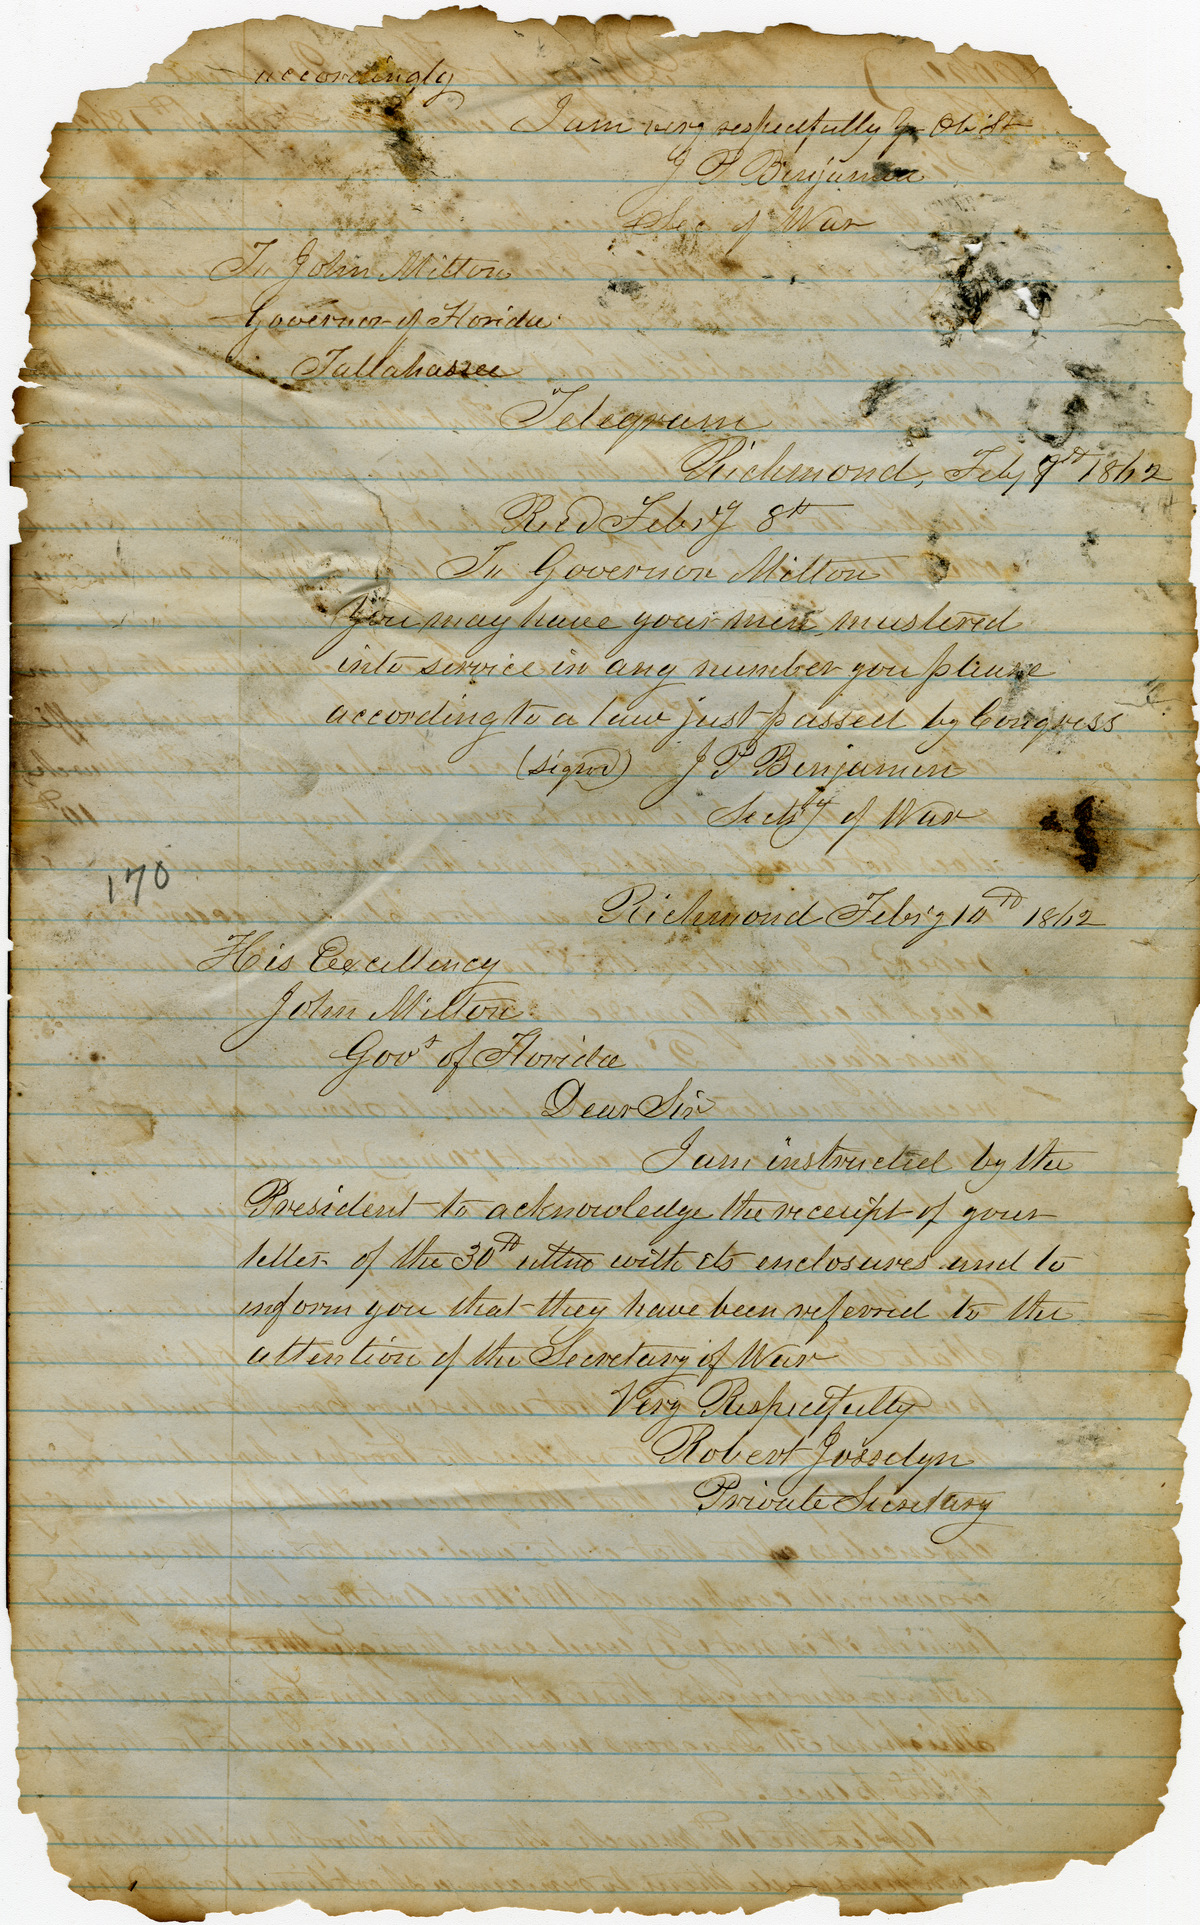 accordingly
I am very respectfully Yr Ob St
J P Benjamin
Sec. of War
To John Milton
Governor of Florida
Tallahassee
Telegram
Richmond, Feby 7th 1862
Recd Febry 8th
To Governor Milton
You may have your men mustered
into service in any number you please
according to a law just passed by Congress
(signd) J P Benjamin
Secty of War
170
Richmond Feb'y 10th 1862
His Excellency
John Milton
Govr of Florida
Dear Sir
I am instructed by the
President to acknowledge the receipt of your
letter of the 30th ultmo with its enclosures and to
inform you that they have been referred to the
attention of the Secretary of War
Very Respectfully
Robert Josselyn
Private Secretary